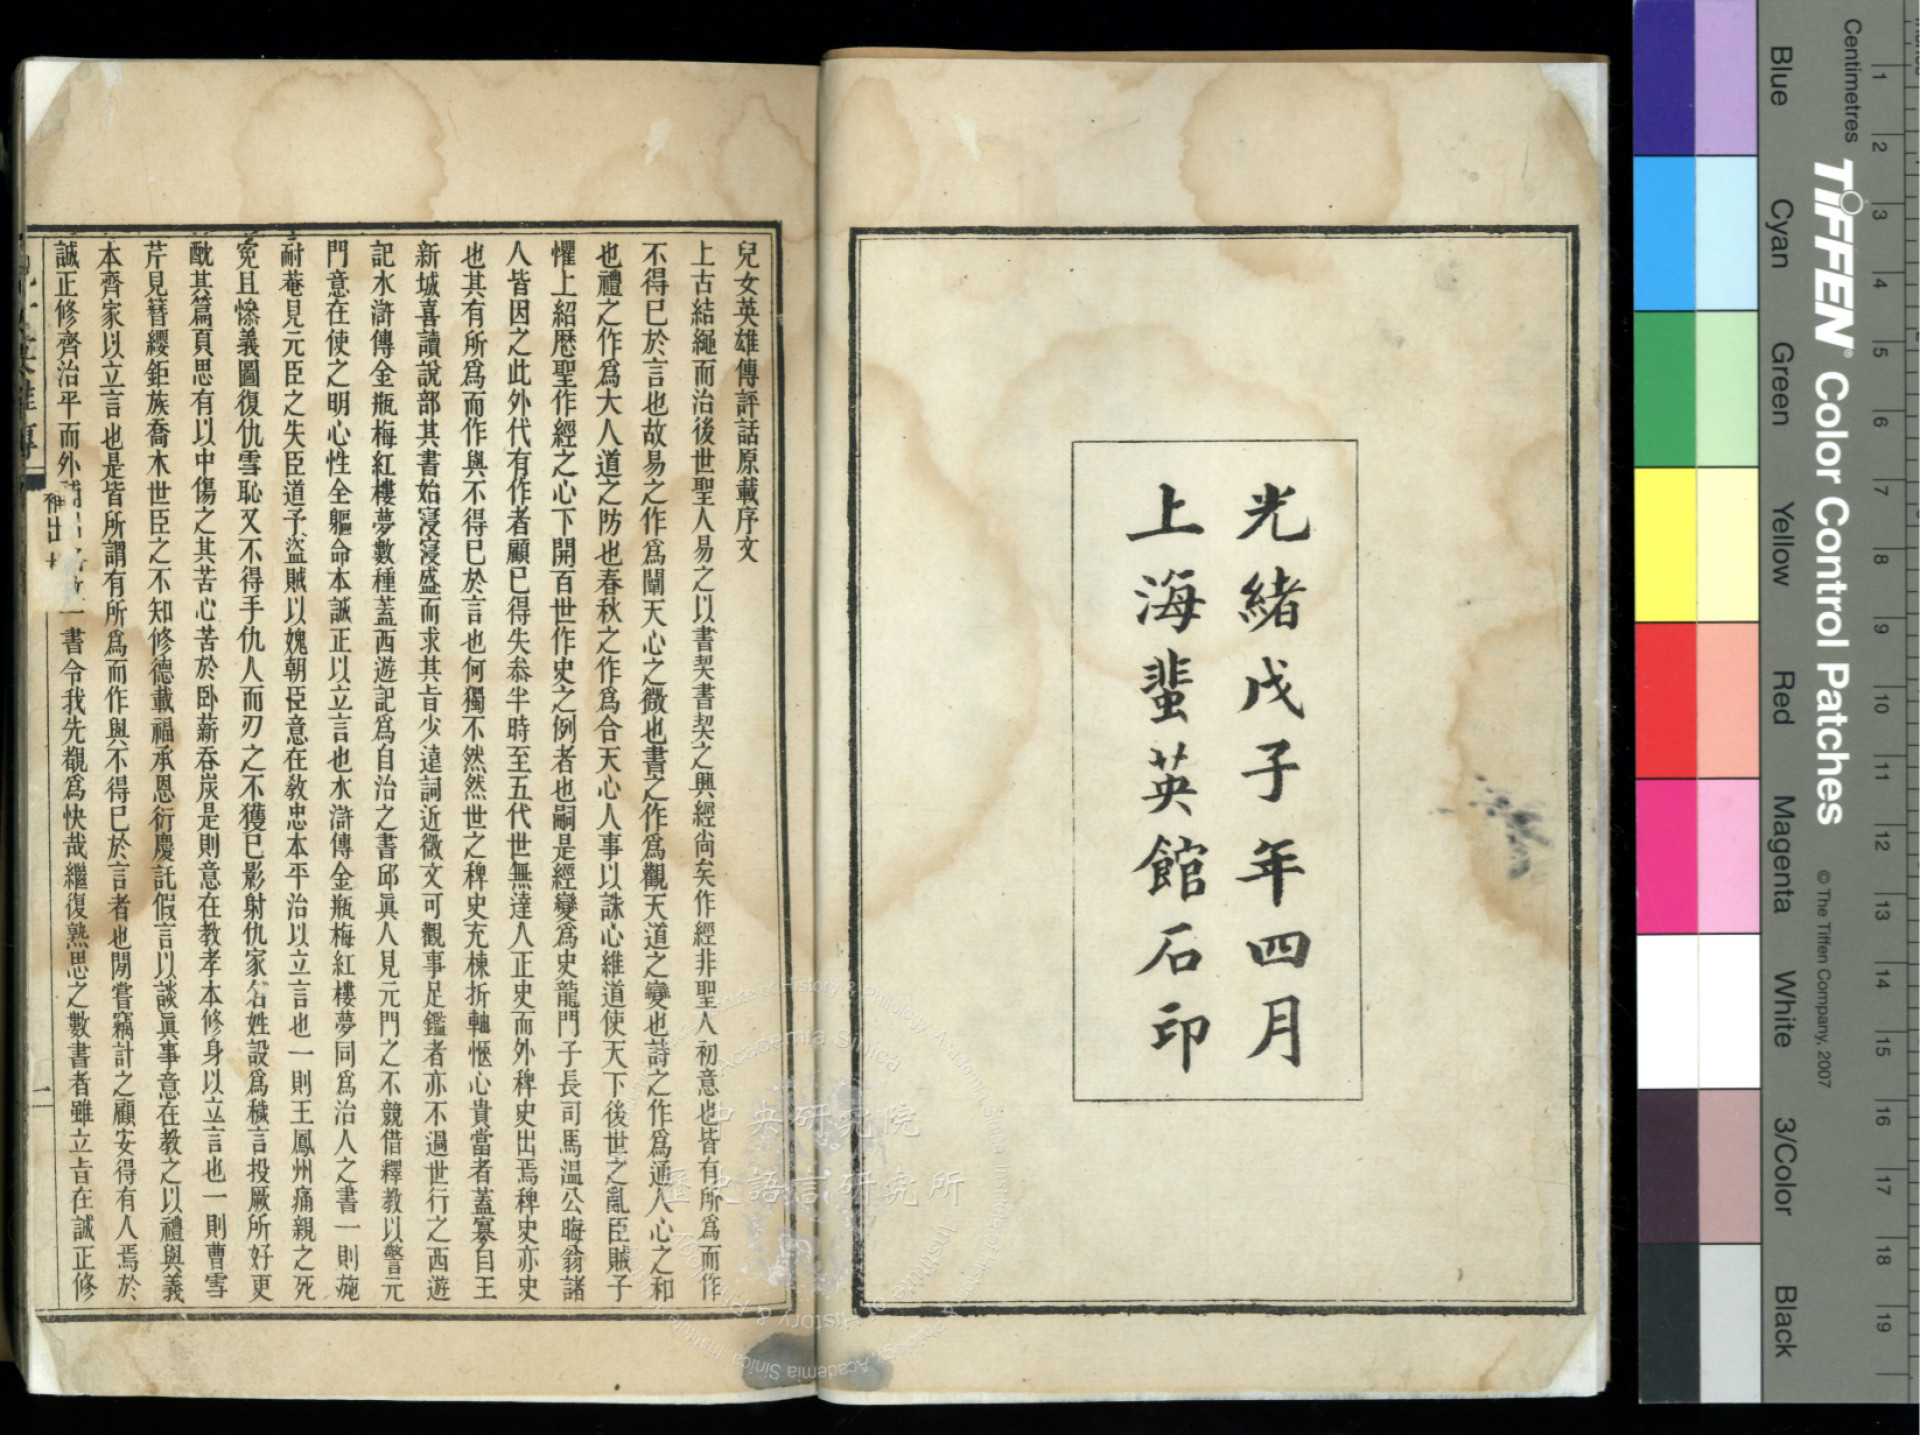 光緒戊子年四月
上海蜚英館石印
兒女英雄傳評話原載序文
上古結繩而治後世聖人易之以書契書契之興經尙矣作經非聖人初意也皆有所爲而作
不得已於言也故易之作爲闡天心之微也書之作爲觀天道之變也詩之作爲通人心之和
也禮之作爲大人道之防也春秋之作爲合天心人事以誅心維道使天下後世之亂臣賊子
懼上紹厯聖作經之心下開百世作史之例者也嗣是經變爲史龍門子長司馬温公晦翁諸
人皆因之此外代有作者顧已得失叅半時至五代世無達人正史而外稗史出焉稗史亦史
也其有所爲而作與不得已於言也何獨不然然世之稗史充棟折軸愜心貴當者蓋寡自王
新城喜讀說部其書始寖寖盛而求其旨少遠詞近微文可觀事足鑑者亦不過世行之西遊
記水滸傳金瓶梅紅樓夢數種蓋西遊記爲自治之書邱眞人見元門之不競借釋教以警元
門意在使之明心性全軀命本誠正以立言也水滸傳金瓶梅紅樓夢同爲治人之書一則施
耐菴見元臣之失臣道予盜賊以媿朝臣意在敎忠本平治以立言也一則王鳳州痛親之死
寃且慘義圖復仇雪恥又不得手仇人而刃之不獲已影射仇家名姓設爲穢言投厥所好更
酖其篇頁思有以中傷之其苦心苦於卧薪吞炭是則意在教孝本修身以立言也一則曹雪
芹見簪纓鉅族喬木世臣之不知修德載福承恩衍慶託假言以談眞事意在教之以禮與義
本齊家以立言也是皆所謂有所爲而作與不得已於言者也閒嘗竊計之顧安得有人焉於
誠正修齊治平而外補一書令我先覩爲快哉繼復熟思之數書者雖立旨在誠正修
一
Tiffen Color Control Patches
© The Tiffen Company, 2007
Centimetres
1 2 3 4 5 6 7 8 9 10 11 12 13 14 15 16 17 18 19
Blue Cyan Green Yellow Red Magenta White 3/Color Black
中央研究院
歷史語言研究所
Academia Sinica